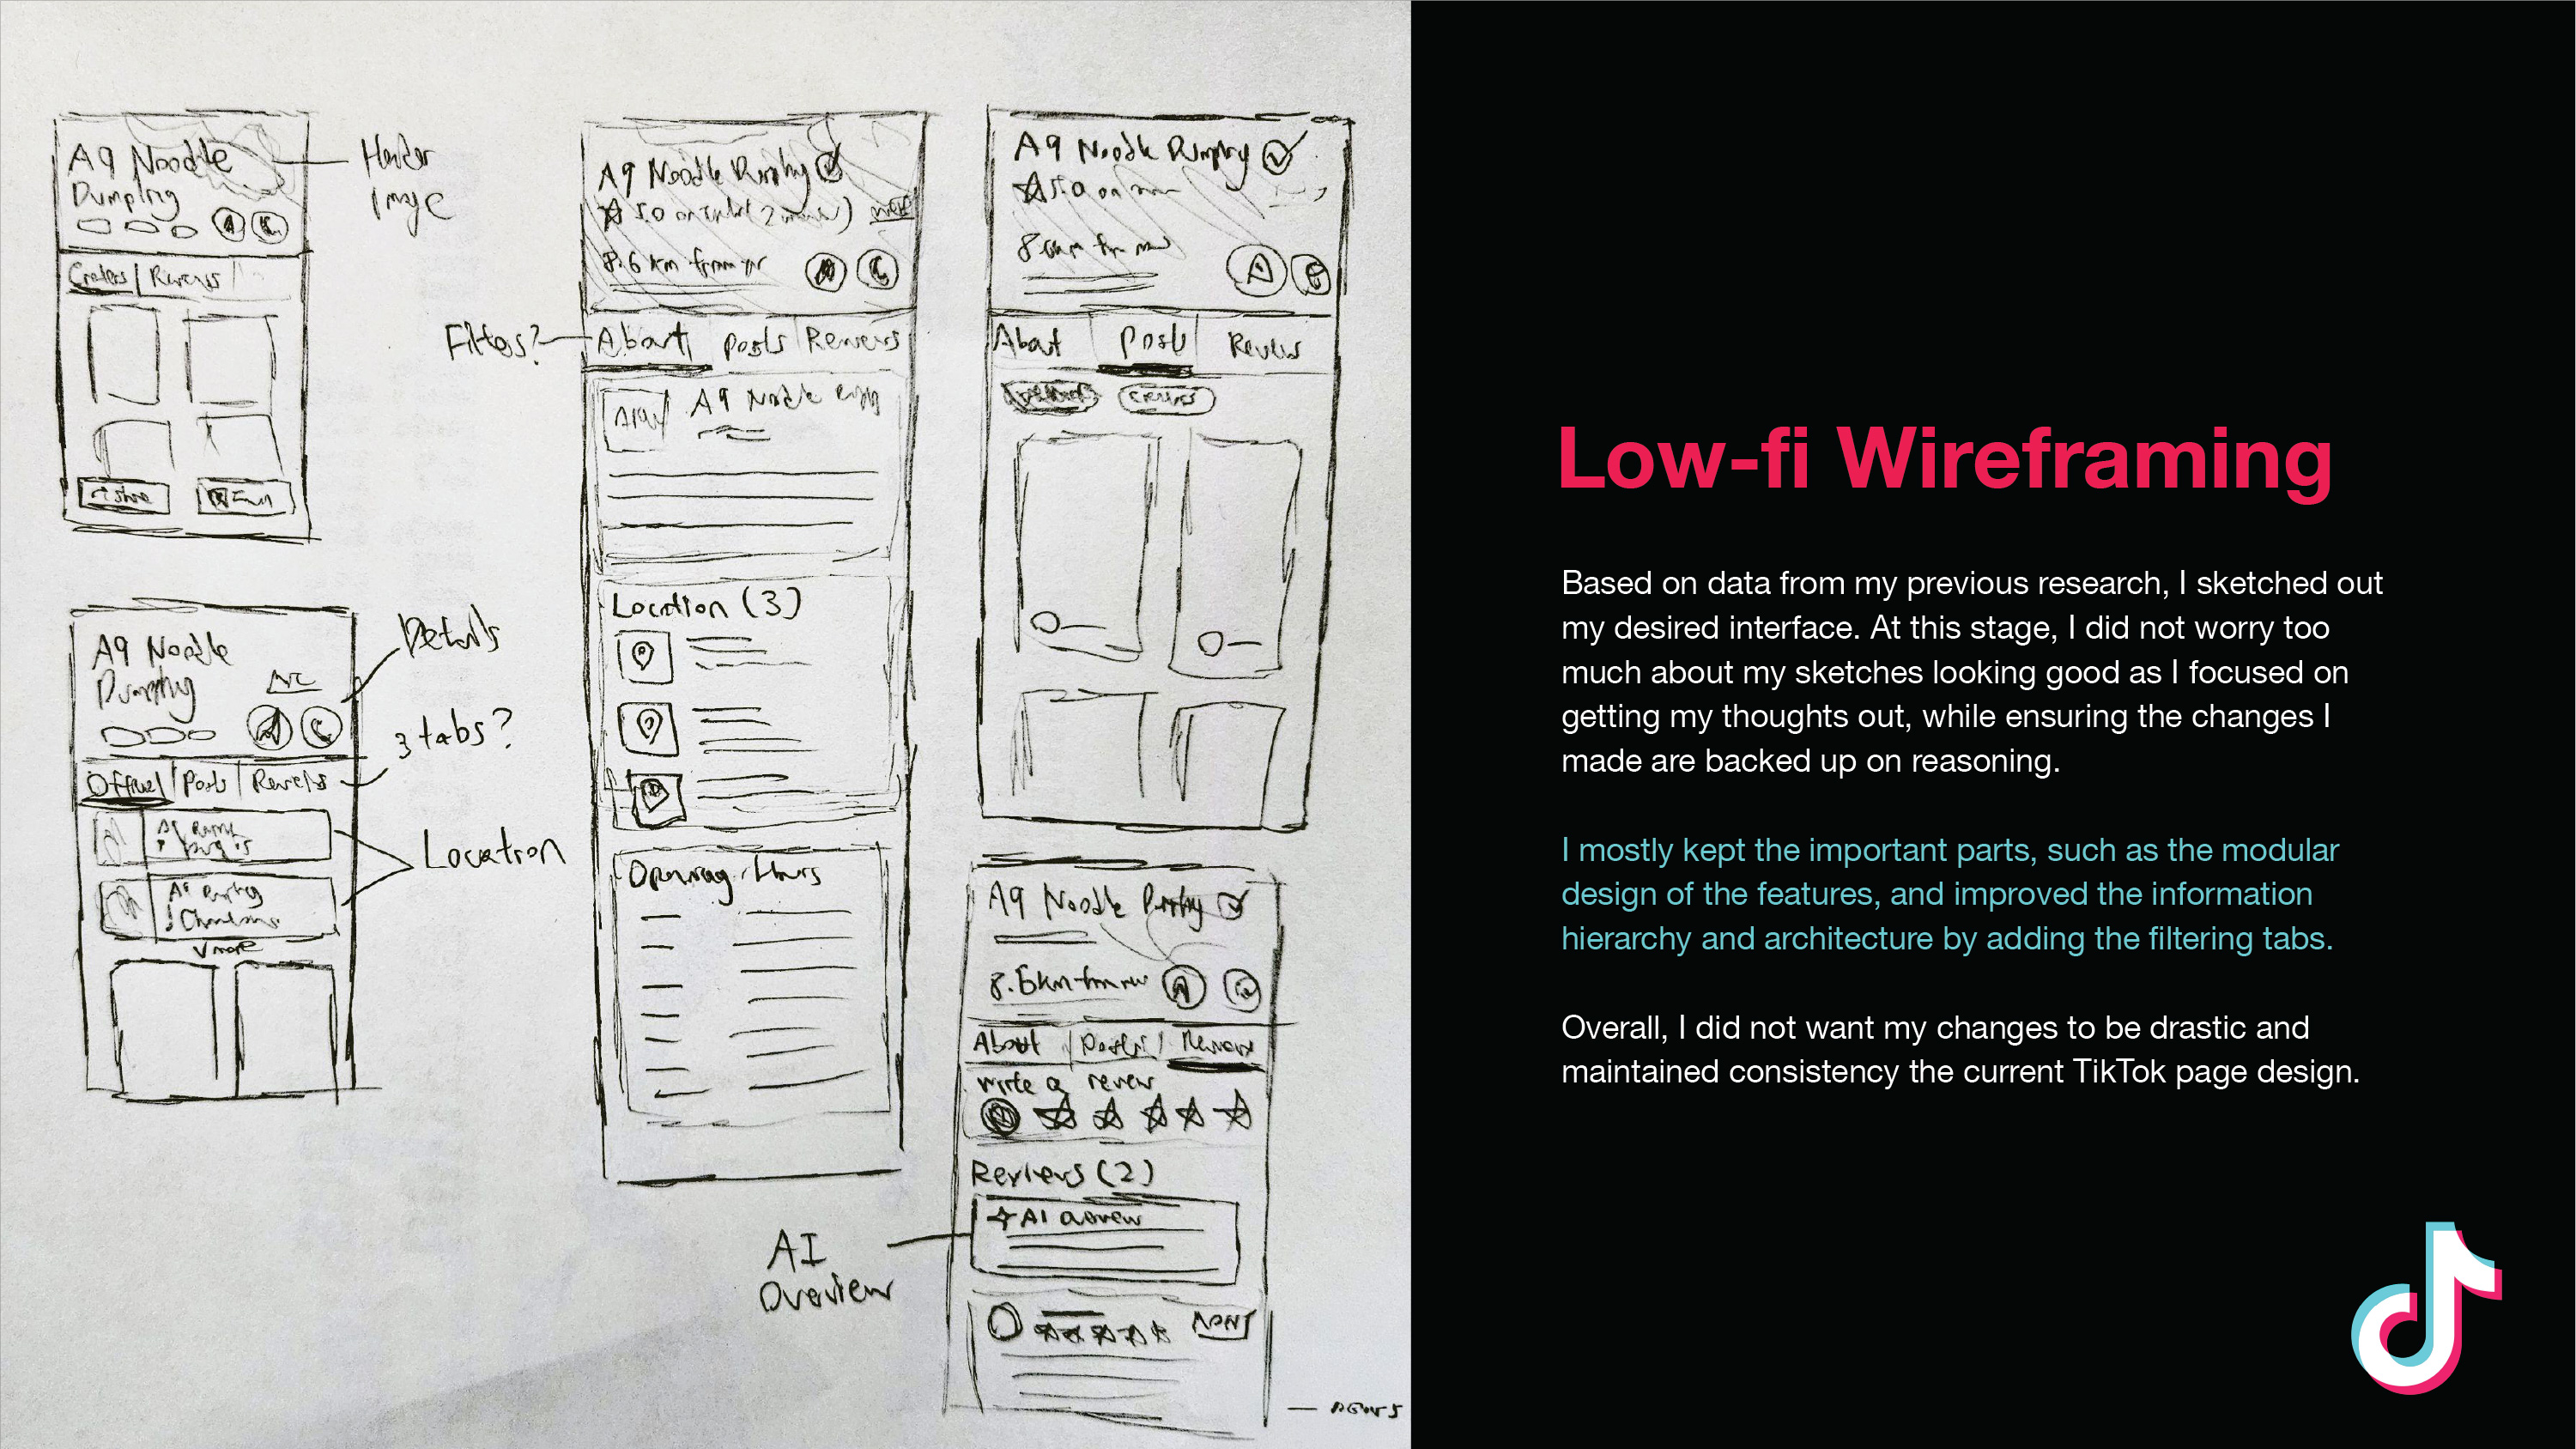 A9 Noodle
Dumpling
Header
Image
Creators | Reviews
Share
A9 Noodle
Dumpling
Details
3 tabs?
Official | Posts | Reviews
Location
V more
A9 Noodle Dumpling
8.6 km from
Filters?
About | Posts | Reviews
A9 Noodle
Location (3)
Opening Hours
A9 Noodle Dumpling
5.0 on
About
Posts
Reviews
A9 Noodle
About | Posts | Reviews
write a review
Reviews (2)
AI
AI
Overview
Low-fi Wireframing
Based on data from my previous research, I sketched out
my desired interface. At this stage, I did not worry too
much about my sketches looking good as I focused on
getting my thoughts out, while ensuring the changes I
made are backed up on reasoning.
I mostly kept the important parts, such as the modular
design of the features, and improved the information
hierarchy and architecture by adding the filtering tabs.
Overall, I did not want my changes to be drastic and
maintained consistency the current TikTok page design.